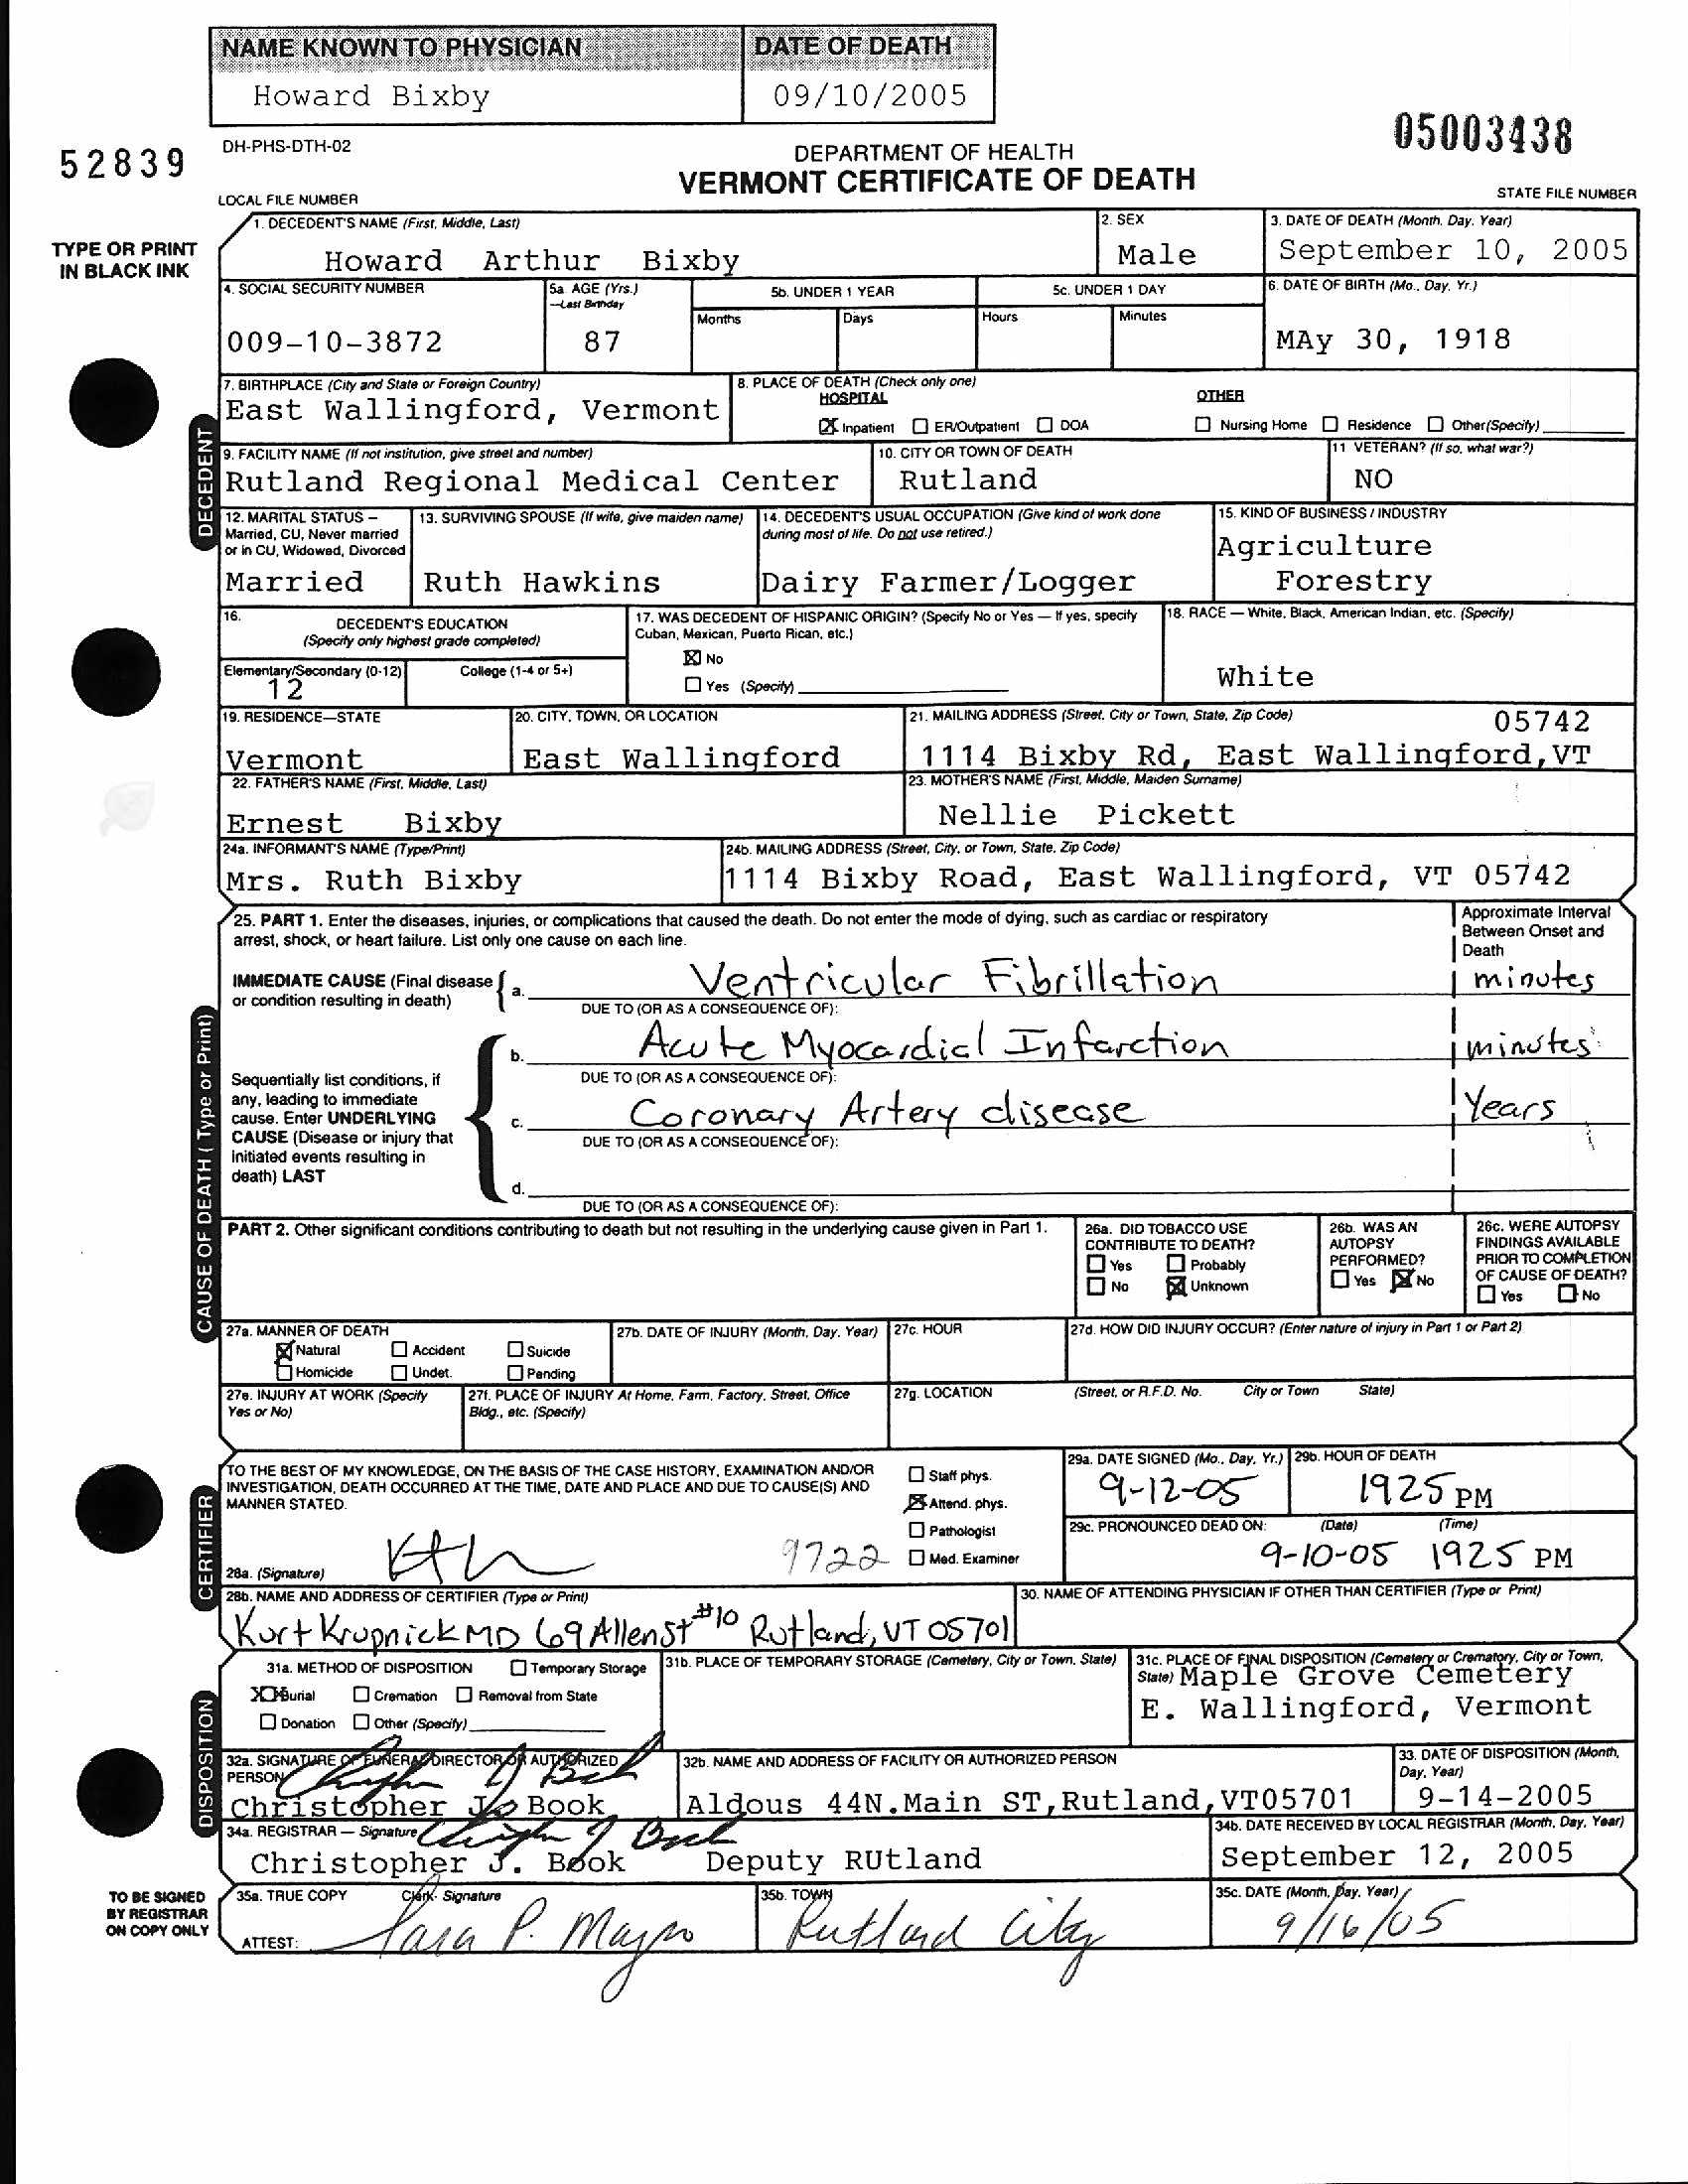 NAME KNOWN TO PHYSICIAN DATE OF DEATH
Howard Bixby 09/10/2005
52839 DH-PHS-DTH-02 DEPARTMENT OF HEALTH 05003438
VERMONT CERTIFICATE OF DEATH
LOCAL FILE NUMBER STATE FILE NUMBER
TYPE OR PRINT
IN BLACK INK
1. DECEDENT'S NAME (First, Middle, Last) 2. SEX 3. DATE OF DEATH (Month, Day, Year)
Howard Arthur Bixby Male September 10, 2005
4. SOCIAL SECURITY NUMBER 5a. AGE (Yrs.) 5b. UNDER 1 YEAR 5c. UNDER 1 DAY 6. DATE OF BIRTH (Mo., Day, Yr.)
—Last Birthday
Months Days Hours Minutes
009-10-3872 87 MAy 30, 1918
7. BIRTHPLACE (City and State or Foreign Country) 8. PLACE OF DEATH (Check only one)
HOSPITAL OTHER
East Wallingford, Vermont
Inpatient ER/Outpatient DOA Nursing Home Residence Other(Specify)
DECEDENT
9. FACILITY NAME (If not institution, give street and number) 10. CITY OR TOWN OF DEATH 11 VETERAN? (If so, what war?)
Rutland Regional Medical Center Rutland NO
12. MARITAL STATUS – 13. SURVIVING SPOUSE (If wife, give maiden name) 14. DECEDENT'S USUAL OCCUPATION (Give kind of work done 15. KIND OF BUSINESS / INDUSTRY
Married, CU, Never married during most of life. Do not use retired.)
or in CU, Widowed, Divorced Agriculture
Married Ruth Hawkins Dairy Farmer/Logger Forestry
16. DECEDENT'S EDUCATION 17. WAS DECEDENT OF HISPANIC ORIGIN? (Specify No or Yes — If yes, specify 18. RACE — White, Black, American Indian, etc. (Specify)
(Specify only highest grade completed) Cuban, Mexican, Puerto Rican, etc.)
No
Elementary/Secondary (0-12) College (1-4 or 5+) White
12 Yes (Specify)
19. RESIDENCE—STATE 20. CITY, TOWN, OR LOCATION 21. MAILING ADDRESS (Street, City or Town, State, Zip Code) 05742
Vermont East Wallingford 1114 Bixby Rd, East Wallingford,VT
22. FATHER'S NAME (First, Middle, Last) 23. MOTHER'S NAME (First, Middle, Maiden Surname)
Ernest Bixby Nellie Pickett
24a. INFORMANT'S NAME (Type/Print) 24b. MAILING ADDRESS (Street, City, or Town, State, Zip Code)
Mrs. Ruth Bixby 1114 Bixby Road, East Wallingford, VT 05742
25. PART 1. Enter the diseases, injuries, or complications that caused the death. Do not enter the mode of dying, such as cardiac or respiratory Approximate Interval
arrest, shock, or heart failure. List only one cause on each line. Between Onset and
Death
IMMEDIATE CAUSE (Final disease a. Ventricular Fibrillation minutes
or condition resulting in death) DUE TO (OR AS A CONSEQUENCE OF):
b. Acute Myocardial Infarction minutes
Sequentially list conditions, if DUE TO (OR AS A CONSEQUENCE OF):
any, leading to immediate
cause. Enter UNDERLYING c. Coronary Artery disease Years
CAUSE (Disease or injury that DUE TO (OR AS A CONSEQUENCE OF):
initiated events resulting in
death) LAST
d.
DUE TO (OR AS A CONSEQUENCE OF):
CAUSE OF DEATH ( Type or Print)
PART 2. Other significant conditions contributing to death but not resulting in the underlying cause given in Part 1. 26a. DID TOBACCO USE 26b. WAS AN 26c. WERE AUTOPSY
CONTRIBUTE TO DEATH? AUTOPSY FINDINGS AVAILABLE
Yes Probably PERFORMED? PRIOR TO COMPLETION
No Unknown Yes No OF CAUSE OF DEATH?
Yes No
27a. MANNER OF DEATH 27b. DATE OF INJURY (Month, Day, Year) 27c. HOUR 27d. HOW DID INJURY OCCUR? (Enter nature of injury in Part 1 or Part 2)
Natural Accident Suicide
Homicide Undet. Pending
27e. INJURY AT WORK (Specify 27f. PLACE OF INJURY At Home, Farm, Factory, Street, Office 27g. LOCATION (Street, or R.F.D. No. City or Town State)
Yes or No) Bldg., etc. (Specify)
TO THE BEST OF MY KNOWLEDGE, ON THE BASIS OF THE CASE HISTORY, EXAMINATION AND/OR Staff phys. 29a. DATE SIGNED (Mo., Day, Yr.) 29b. HOUR OF DEATH
INVESTIGATION, DEATH OCCURRED AT THE TIME, DATE AND PLACE AND DUE TO CAUSE(S) AND
MANNER STATED. Attend. phys. 9-12-05 1925 PM
Pathologist 29c. PRONOUNCED DEAD ON: (Date) (Time)
28a. (Signature) 9722 Med. Examiner 9-10-05 1925 PM
CERTIFIER
28b. NAME AND ADDRESS OF CERTIFIER (Type or Print) 30. NAME OF ATTENDING PHYSICIAN IF OTHER THAN CERTIFIER (Type or Print)
Kurt Krupnick MD 69 Allen St #10 Rutland, VT 05701
31a. METHOD OF DISPOSITION Temporary Storage 31b. PLACE OF TEMPORARY STORAGE (Cemetery, City or Town, State) 31c. PLACE OF FINAL DISPOSITION (Cemetery or Crematory, City or Town,
State) Maple Grove Cemetery
Burial Cremation Removal from State
Donation Other (Specify) E. Wallingford, Vermont
DISPOSITION
32a. SIGNATURE OF FUNERAL DIRECTOR OR AUTHORIZED 32b. NAME AND ADDRESS OF FACILITY OR AUTHORIZED PERSON 33. DATE OF DISPOSITION (Month,
PERSON Day, Year)
Christopher J. Book Aldous 44N.Main ST,Rutland,VT05701 9-14-2005
34a. REGISTRAR — Signature 34b. DATE RECEIVED BY LOCAL REGISTRAR (Month, Day, Year)
Christopher J. Book Deputy RUtland September 12, 2005
TO BE SIGNED
BY REGISTRAR
ON COPY ONLY
35a. TRUE COPY Clerk- Signature 35b. TOWN 35c. DATE (Month, Day, Year)
ATTEST: P. Rutland City 9/16/05